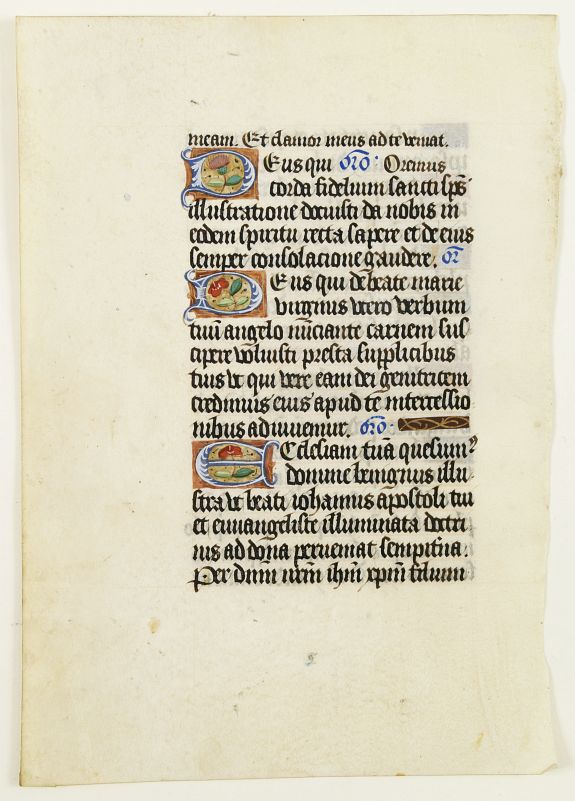 meam. Et clamor meus ad te veniat.
Deus qui oro̅: Oremus
corda fidelium sancti sp̅s
illustratione docuisti da nobis in
eodem spiritu recta sapere et de eius
semper consolacione gaudere. or̅
Deus qui de beate marie
virginis utero verbum
tuu̅ angelo nu̅ciante carnem sus
cipere voluisti presta supplicibus
tuis ut qui vere eam dei genitricem
credimus eius apud te intercessio
nibus adiuvemur. oro̅:
Ecclesiam tua̅ quesum⁹
domine benignus illu
stra ut beati iohannis apostoli tui
et euuangeliste illuminata doctri
nis ad dona perveniat sempit̅na.
Per dn̅m nr̅m ih̅m xp̅m filium